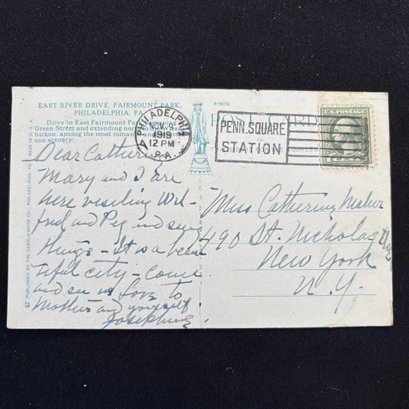 EAST RIVER DRIVE, FAIRMOUNT PARK,
PHILADELPHIA, PA.
Drive in East Fairmount Park
Green Street and extending
hickon, among the most romantic
que scenery.
POST CARD
PHILADELPHIA
NOV. 9
1919
12 PM
PA.
PENN. SQUARE
STATION
U.S. POSTAGE
Dear Catherine
Mary and I are
here visiting Wil-
fred and Peg and seeing
things - It is a beau-
tiful city - come
and see us. Love to
Mother and yourself
Josephine
Miss Catherine
490 St. Nicholas Ave
New York
N.Y.